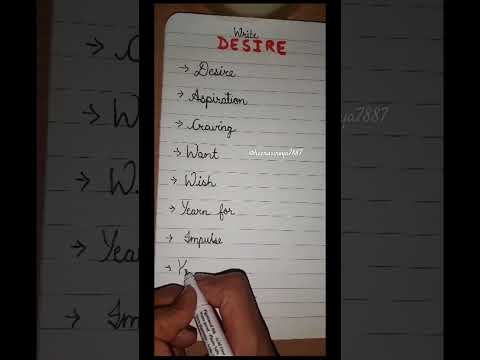 Write
DESIRE
→ Desire
→ Aspiration
→ Craving
→ Want
→ Wish
→ Yearn for
→ Impulse
→ Y